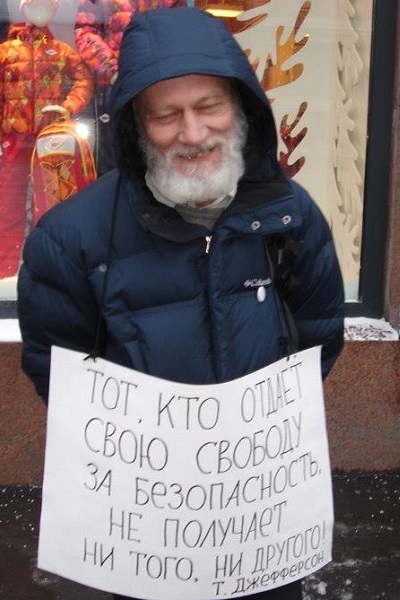 Columbia
ТОТ, КТО ОТДАЁТ
СВОЮ СВОБОДУ
ЗА БЕЗОПАСНОСТЬ,
НЕ ПОЛУЧАЕТ
НИ ТОГО, НИ ДРУГОГО!
Т. ДЖЕФФЕРСОН